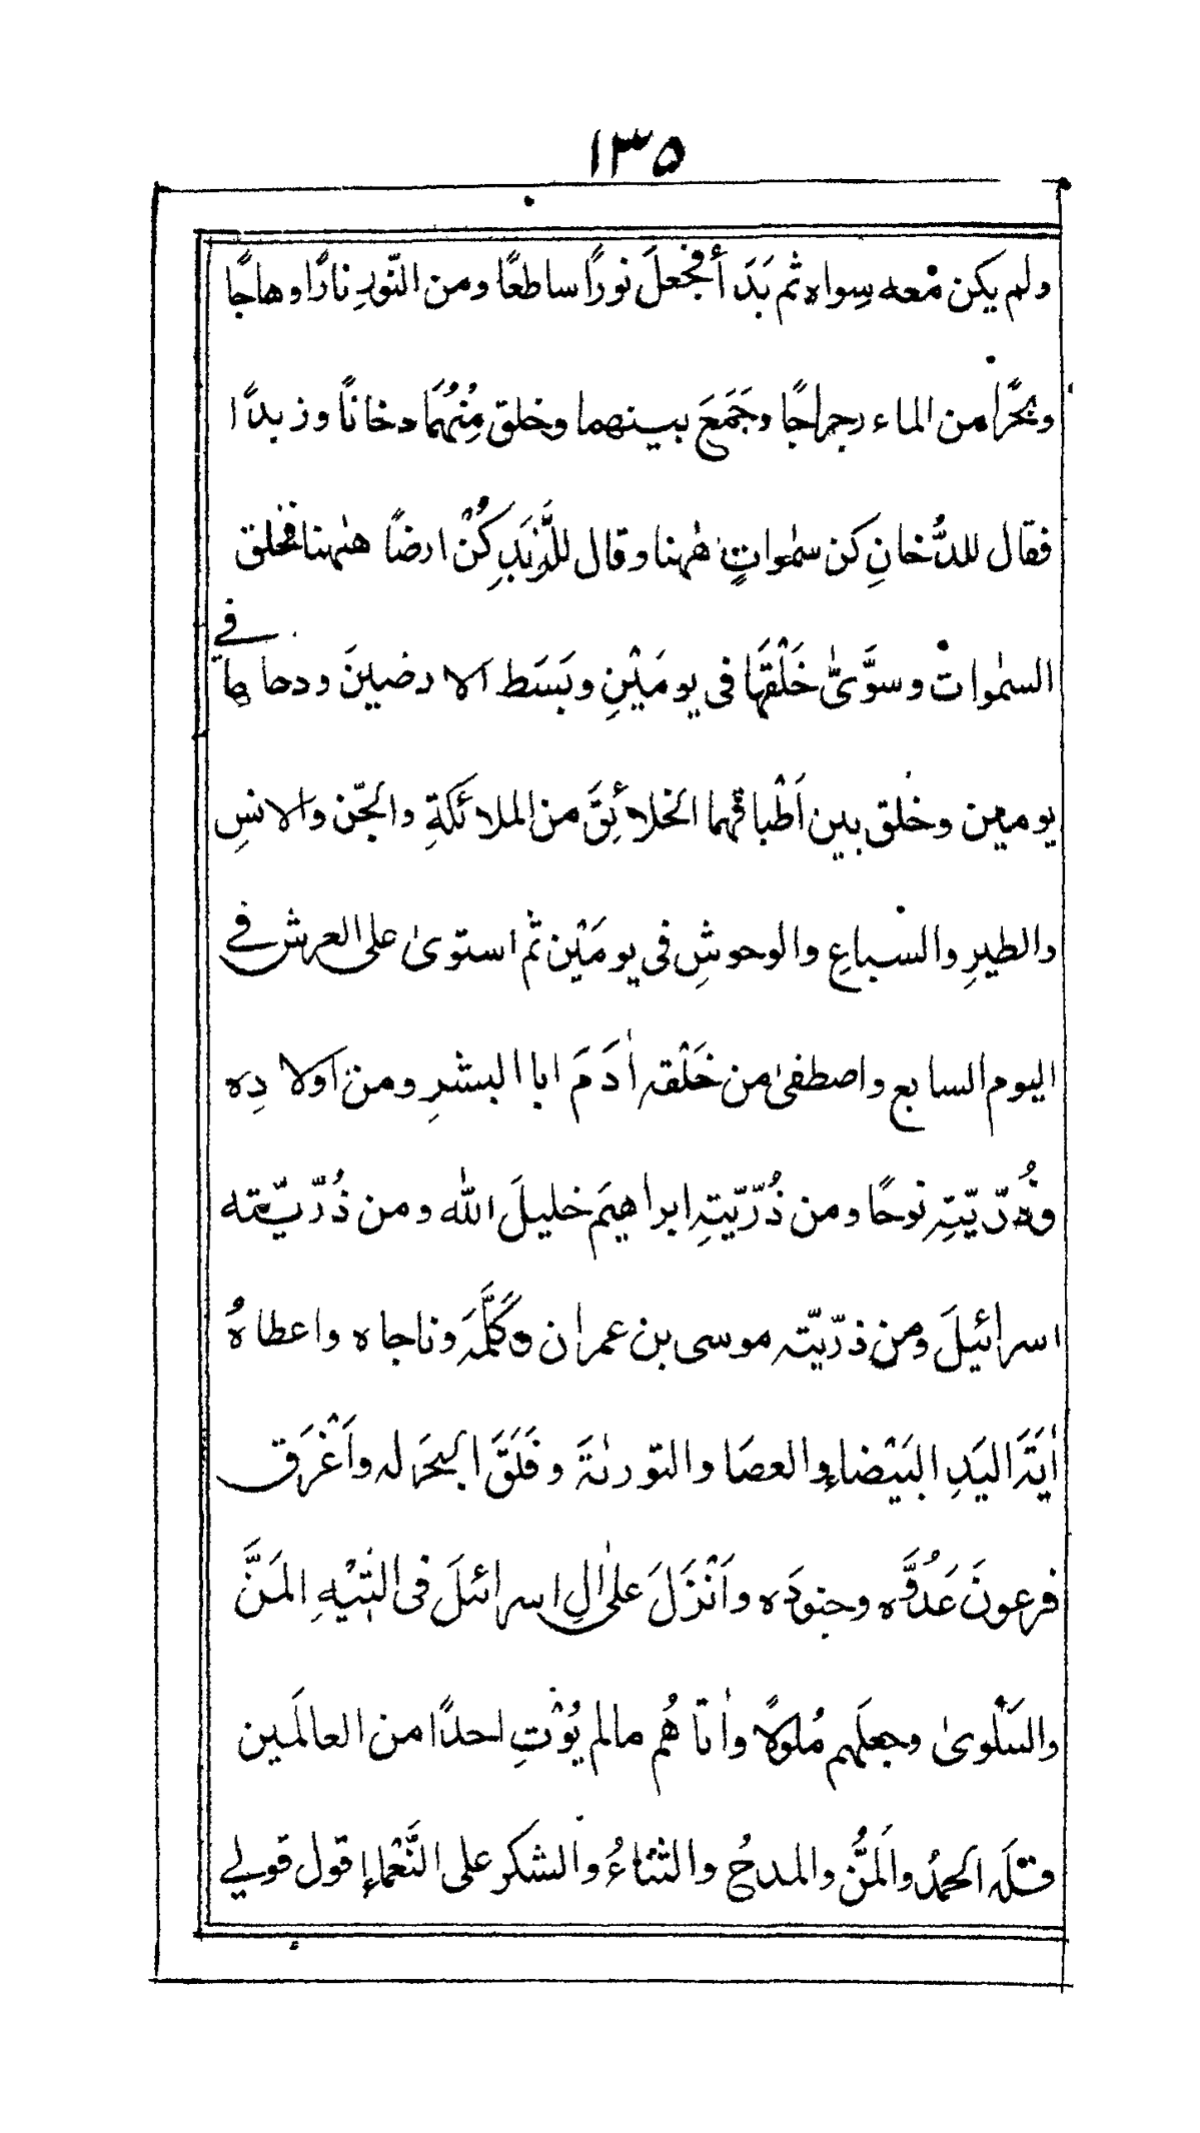 ١٣٥
ولم يكن معه سِواه ثم بَدَأ فجعلَ نورًا ساطعًا ومن النّورِ نارًا وهاجًا
وبحرًا من الماء رجراجًا وجَمَعَ بينهما وخلق مِنهُمَا دخانًا وزبدًا
فقال للدُّخانِ كن سمٰواتٍ هٰهنا وقال للزَّبَدِ كُنْ ارضًا هٰهنا فخلق
السمٰوات وسوَّىٰ خَلْقَهَا فى يومَيْنِ وبَسَط الارضينَ ودحاها في
يومين وخلق بين اَطْباقهما الخلائِقَ من الملائكةِ والجّن والانسِ
والطيرِ والسباعِ والوحوشِ فى يومَيْن ثم استوىٰ على العرش في
اليوم السابع واصطفىٰ من خَلْقه اٰدَمَ ابا البشرِ ومن اولادِه
وذُرّيّتِه نوحًا ومن ذُرّيّتِه ابراهيمَ خليلَ الله ومن ذُرّيّته
اسرائيلَ ومن ذرّيّته موسى بن عمران وكَلَّمَه وناجاه واعطاهُ
اٰيَةَ اليَدِ البَيْضاءِ والعصَا والتورٰىةَ وفَلَقَ البحَر له واَغْرَق
فرعونَ عَدُوَّه وجنودَه واَنْزَلَ علىٰ اٰلِ اسرائيلَ فى التِيْهِ المَنَّ
والسَلْوىٰ وجعلَهم مُلوكًا واٰتاهُم مالم يُؤْتِ احدًا من العالَمين
فَلَه الحمدُ والمَنُّ والمدحُ والثناءُ والشكر على النَّعْماءِ قول قولي